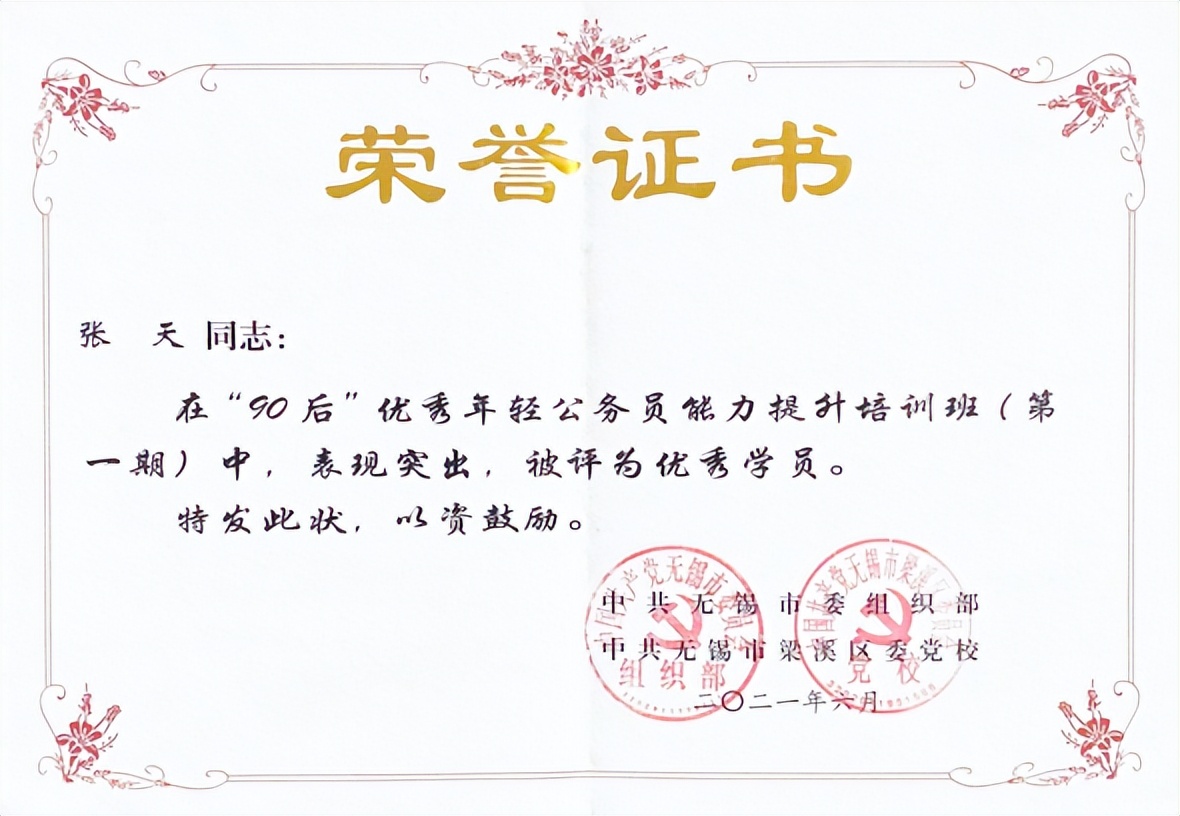 荣誉证书
张 天 同志：
在“90后”优秀年轻公务员能力提升培训班（第
一期）中，表现突出，被评为优秀学员。
特发此状，以资鼓励。
中共无锡市委组织部
中共无锡市梁溪区委党校
二〇二一年六月
中国共产党无锡市委员会
组织部
中国共产党无锡市梁溪区委员会
党校